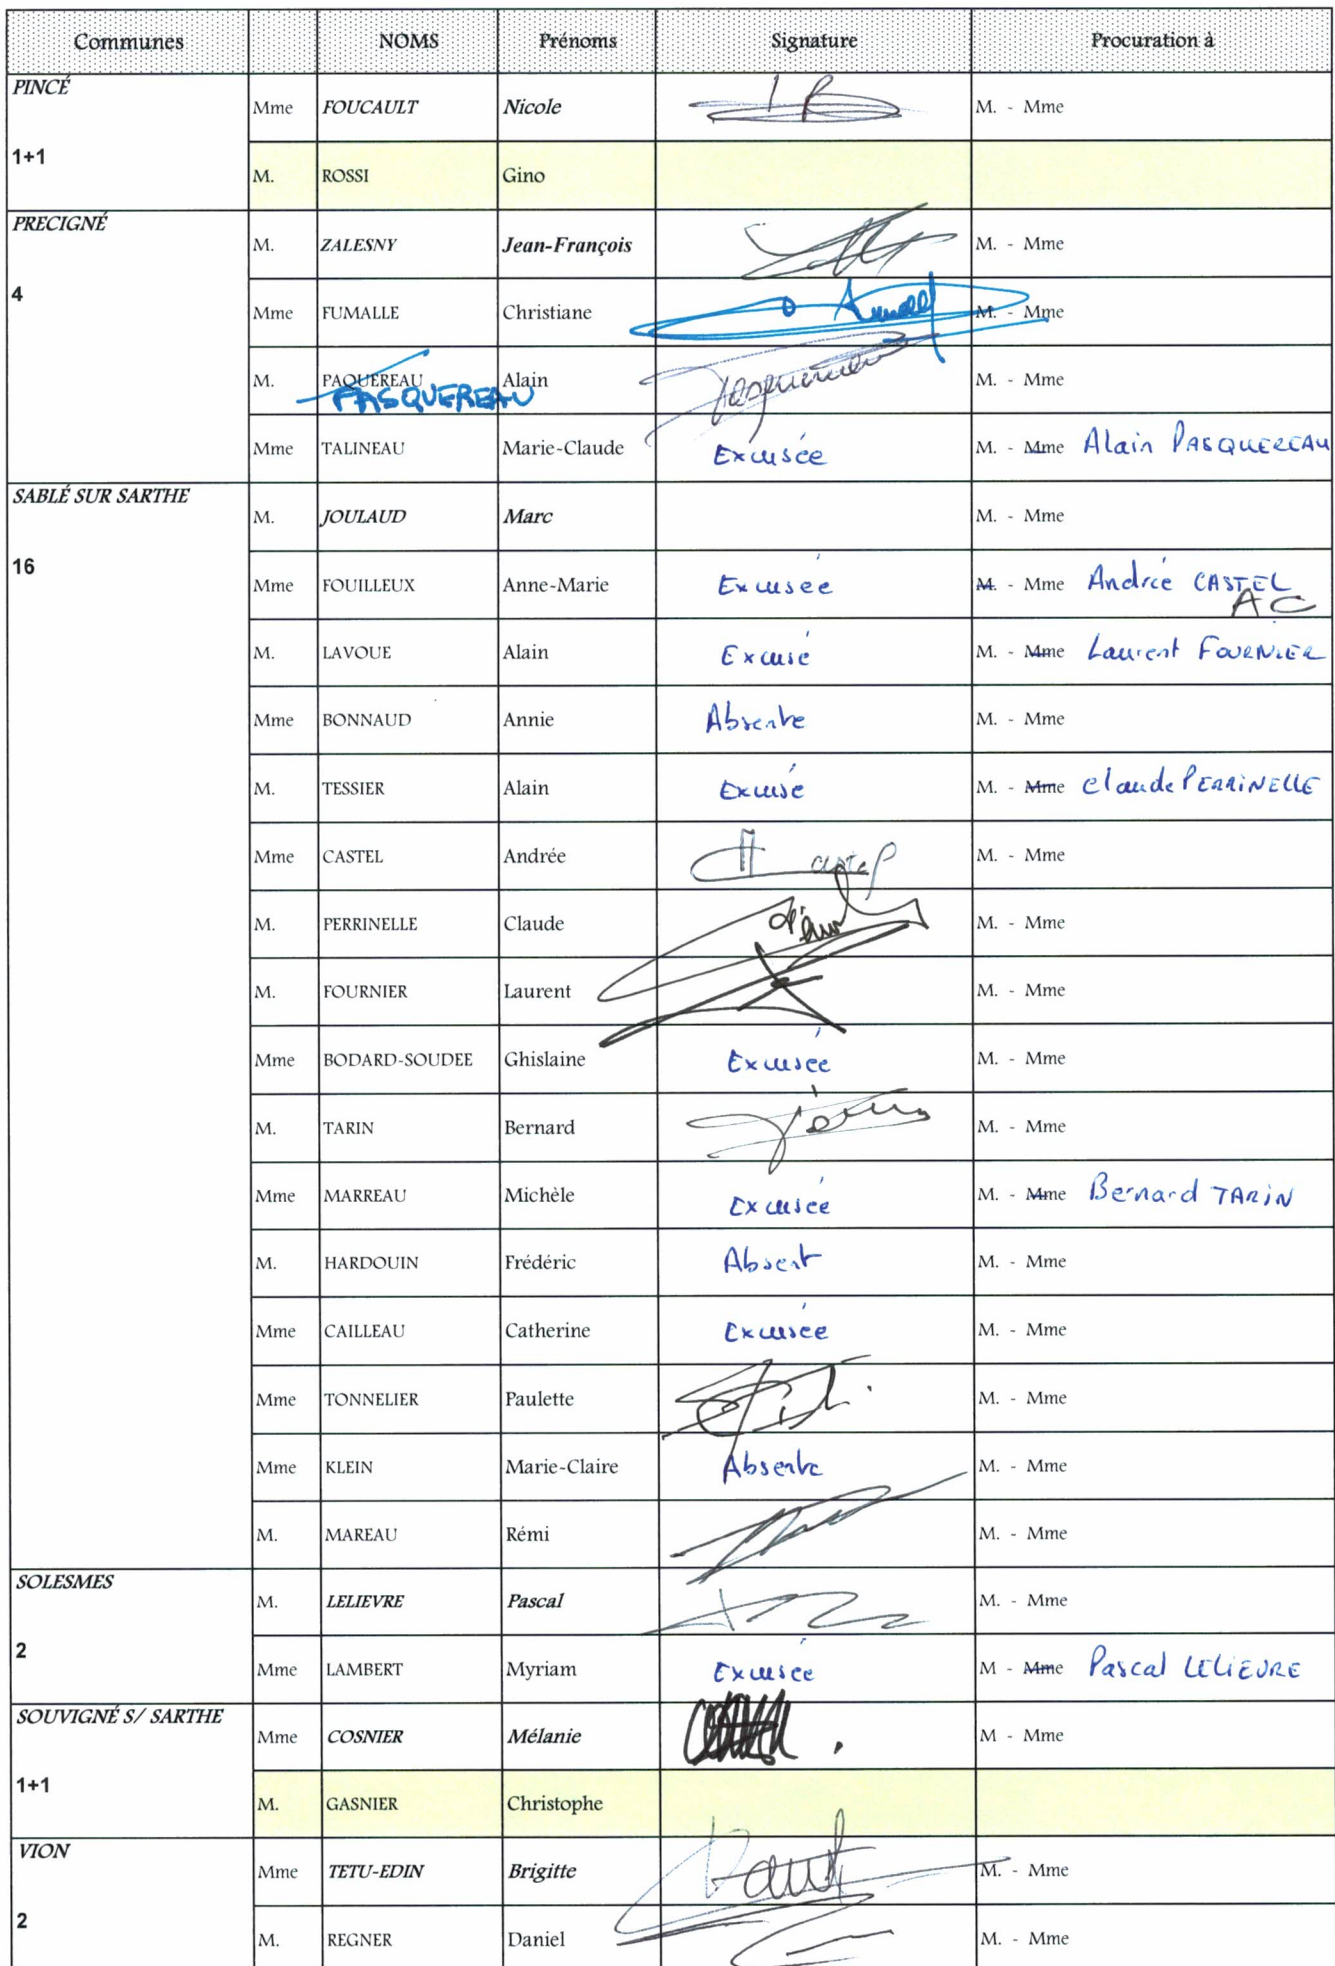 Communes NOMS Prénoms Signature Procuration à
PINCÉ
Mme FOUCAULT Nicole M. - Mme
1+1
M. ROSSI Gino
PRECIGNÉ
M. ZALESNY Jean-François M. - Mme
4
Mme FUMALLE Christiane M. - Mme
M. PAQUEREAU Alain M. - Mme
PASQUEREAU
Mme TALINEAU Marie-Claude Excusée M. - Mme Alain PASQUEREAU
SABLÉ SUR SARTHE
M. JOULAUD Marc M. - Mme
16
Mme FOUILLEUX Anne-Marie Excusée M. - Mme Andrée CASTEL
AC
M. LAVOUE Alain Excusé M. - Mme Laurent FOURNIER
Mme BONNAUD Annie Absente M. - Mme
M. TESSIER Alain Excusé M. - Mme Claude PERRINELLE
Mme CASTEL Andrée Castel M. - Mme
M. PERRINELLE Claude M. - Mme
M. FOURNIER Laurent M. - Mme
Mme BODARD-SOUDEE Ghislaine Excusée M. - Mme
M. TARIN Bernard M. - Mme
Mme MARREAU Michèle Excusée M. - Mme Bernard TARIN
M. HARDOUIN Frédéric Absent M. - Mme
Mme CAILLEAU Catherine Excusée M. - Mme
Mme TONNELIER Paulette M. - Mme
Mme KLEIN Marie-Claire Absente M. - Mme
M. MAREAU Rémi M. - Mme
SOLESMES
M. LELIEVRE Pascal M. - Mme
2
Mme LAMBERT Myriam Excusée M - Mme Pascal LELIEVRE
SOUVIGNÉ S/ SARTHE
Mme COSNIER Mélanie M - Mme
1+1
M. GASNIER Christophe
VION
Mme TETU-EDIN Brigitte M. - Mme
2
M. REGNER Daniel M. - Mme